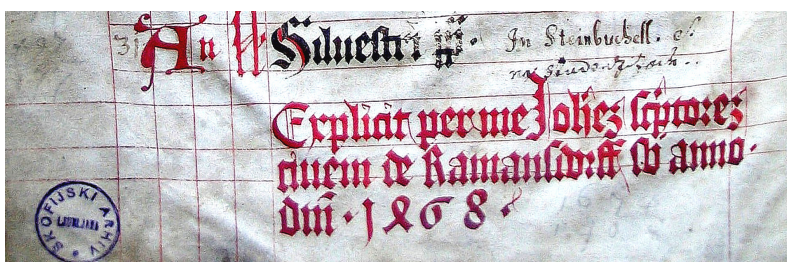 31 A n ll Siluestri pp. In Steinbuchell. et
Explicit per me Johez scptorez
ciuem de Ramansdorff sb anno.
dni · 1868
SKOFIJSKI ARHIV